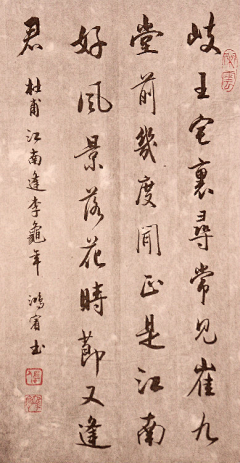 岐王宅裏尋常見崔九
堂前幾度聞正是江南
好風景落花時節又逢
君
杜甫江南逢李龜年 鴻賓书